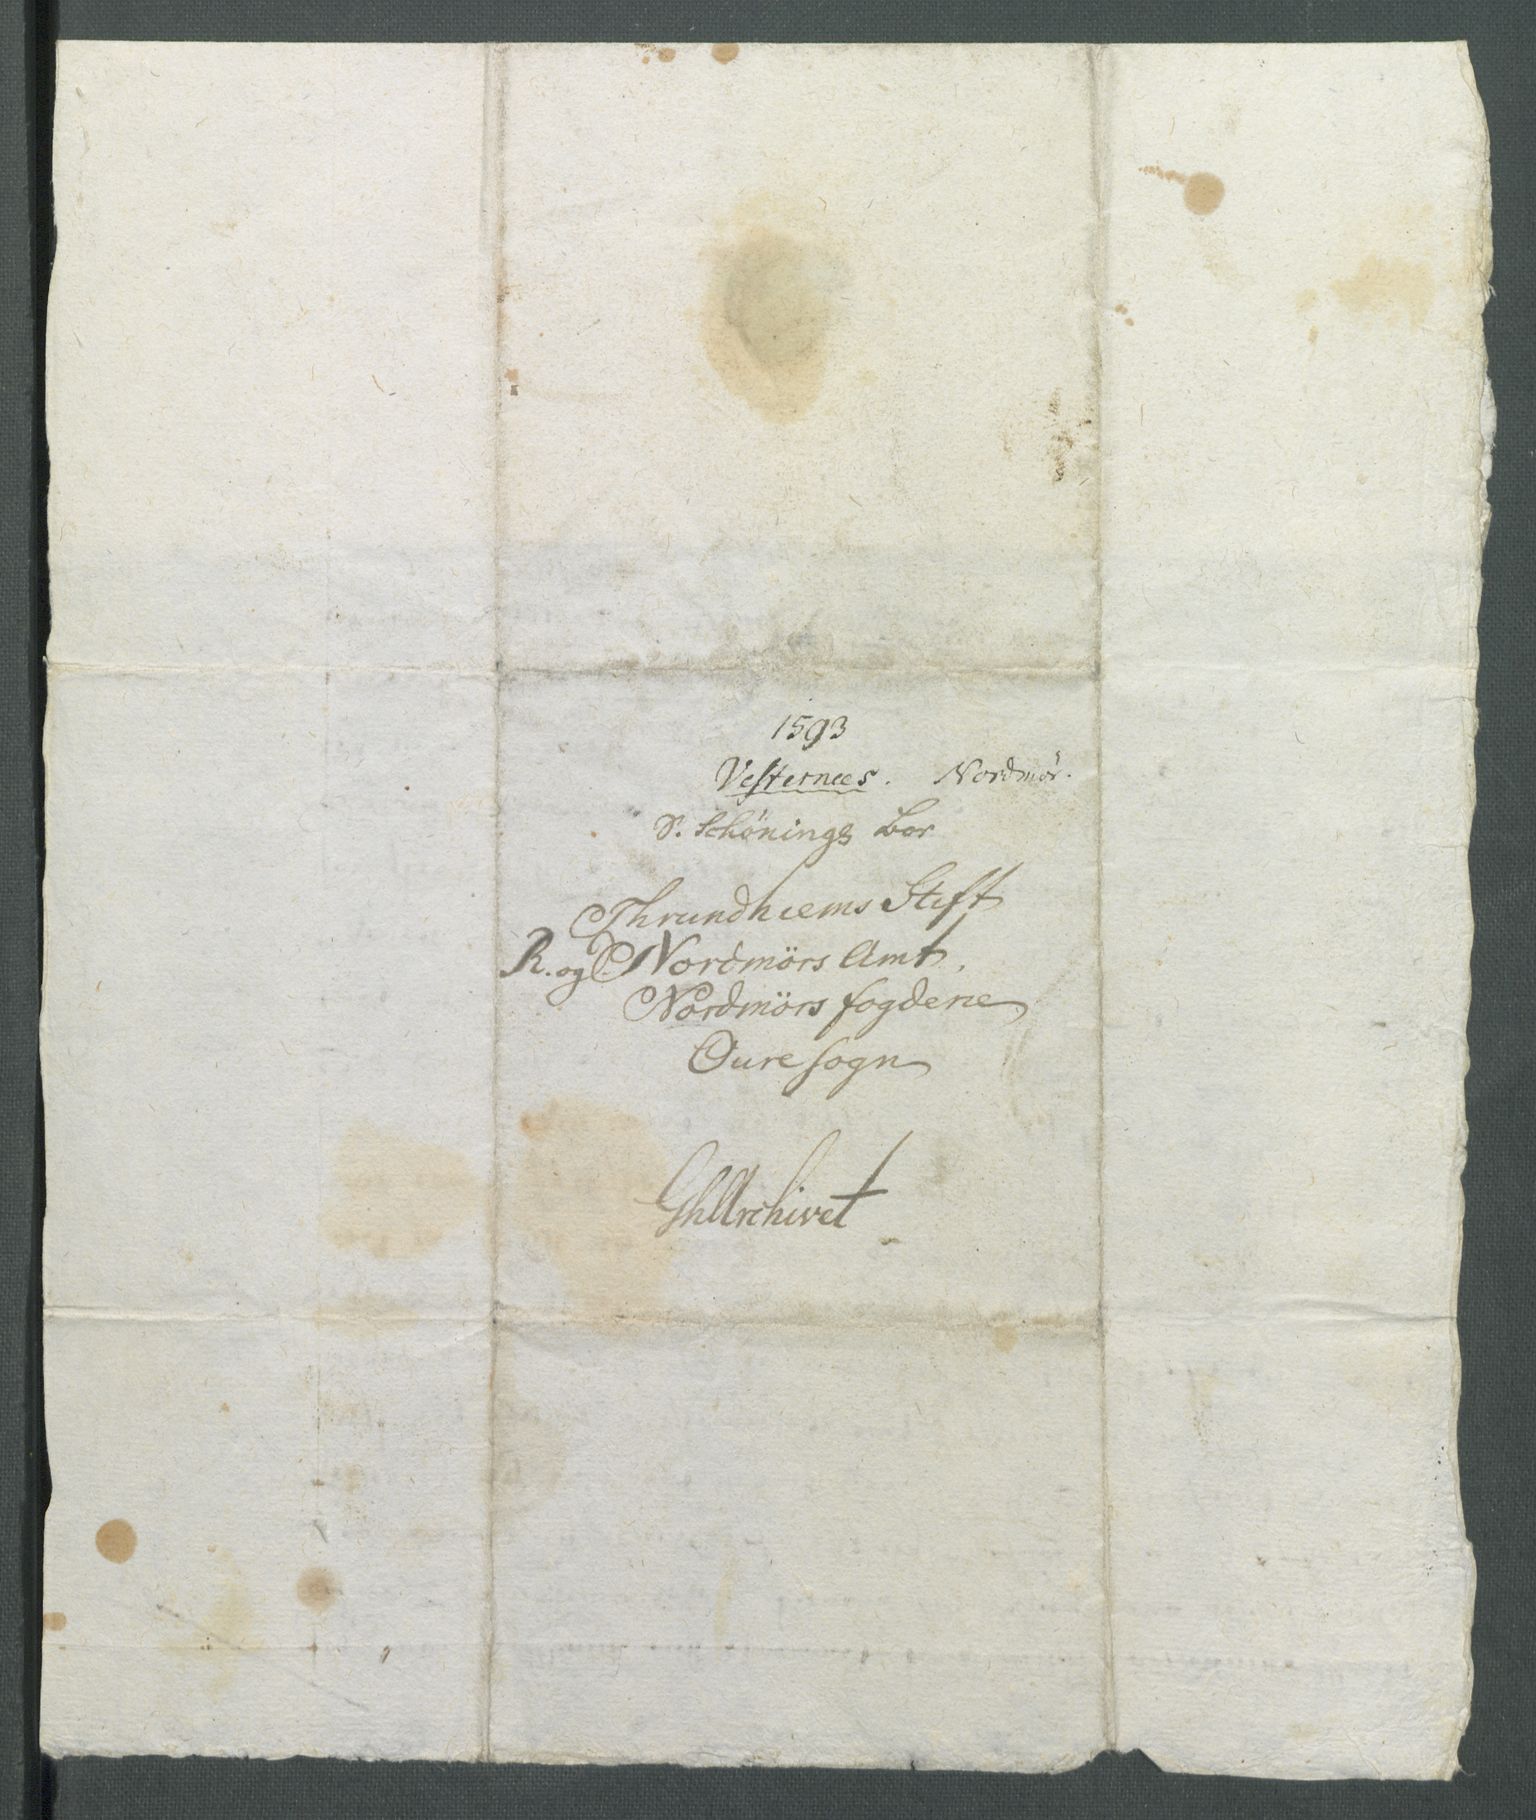 1593
Vesternees. Nordmør.
S. Schönings Bor
Thrundhiems Stift
R. og Nordmörs Amt.
Nordmörs fogderie
Oure sogn
GhArchivet